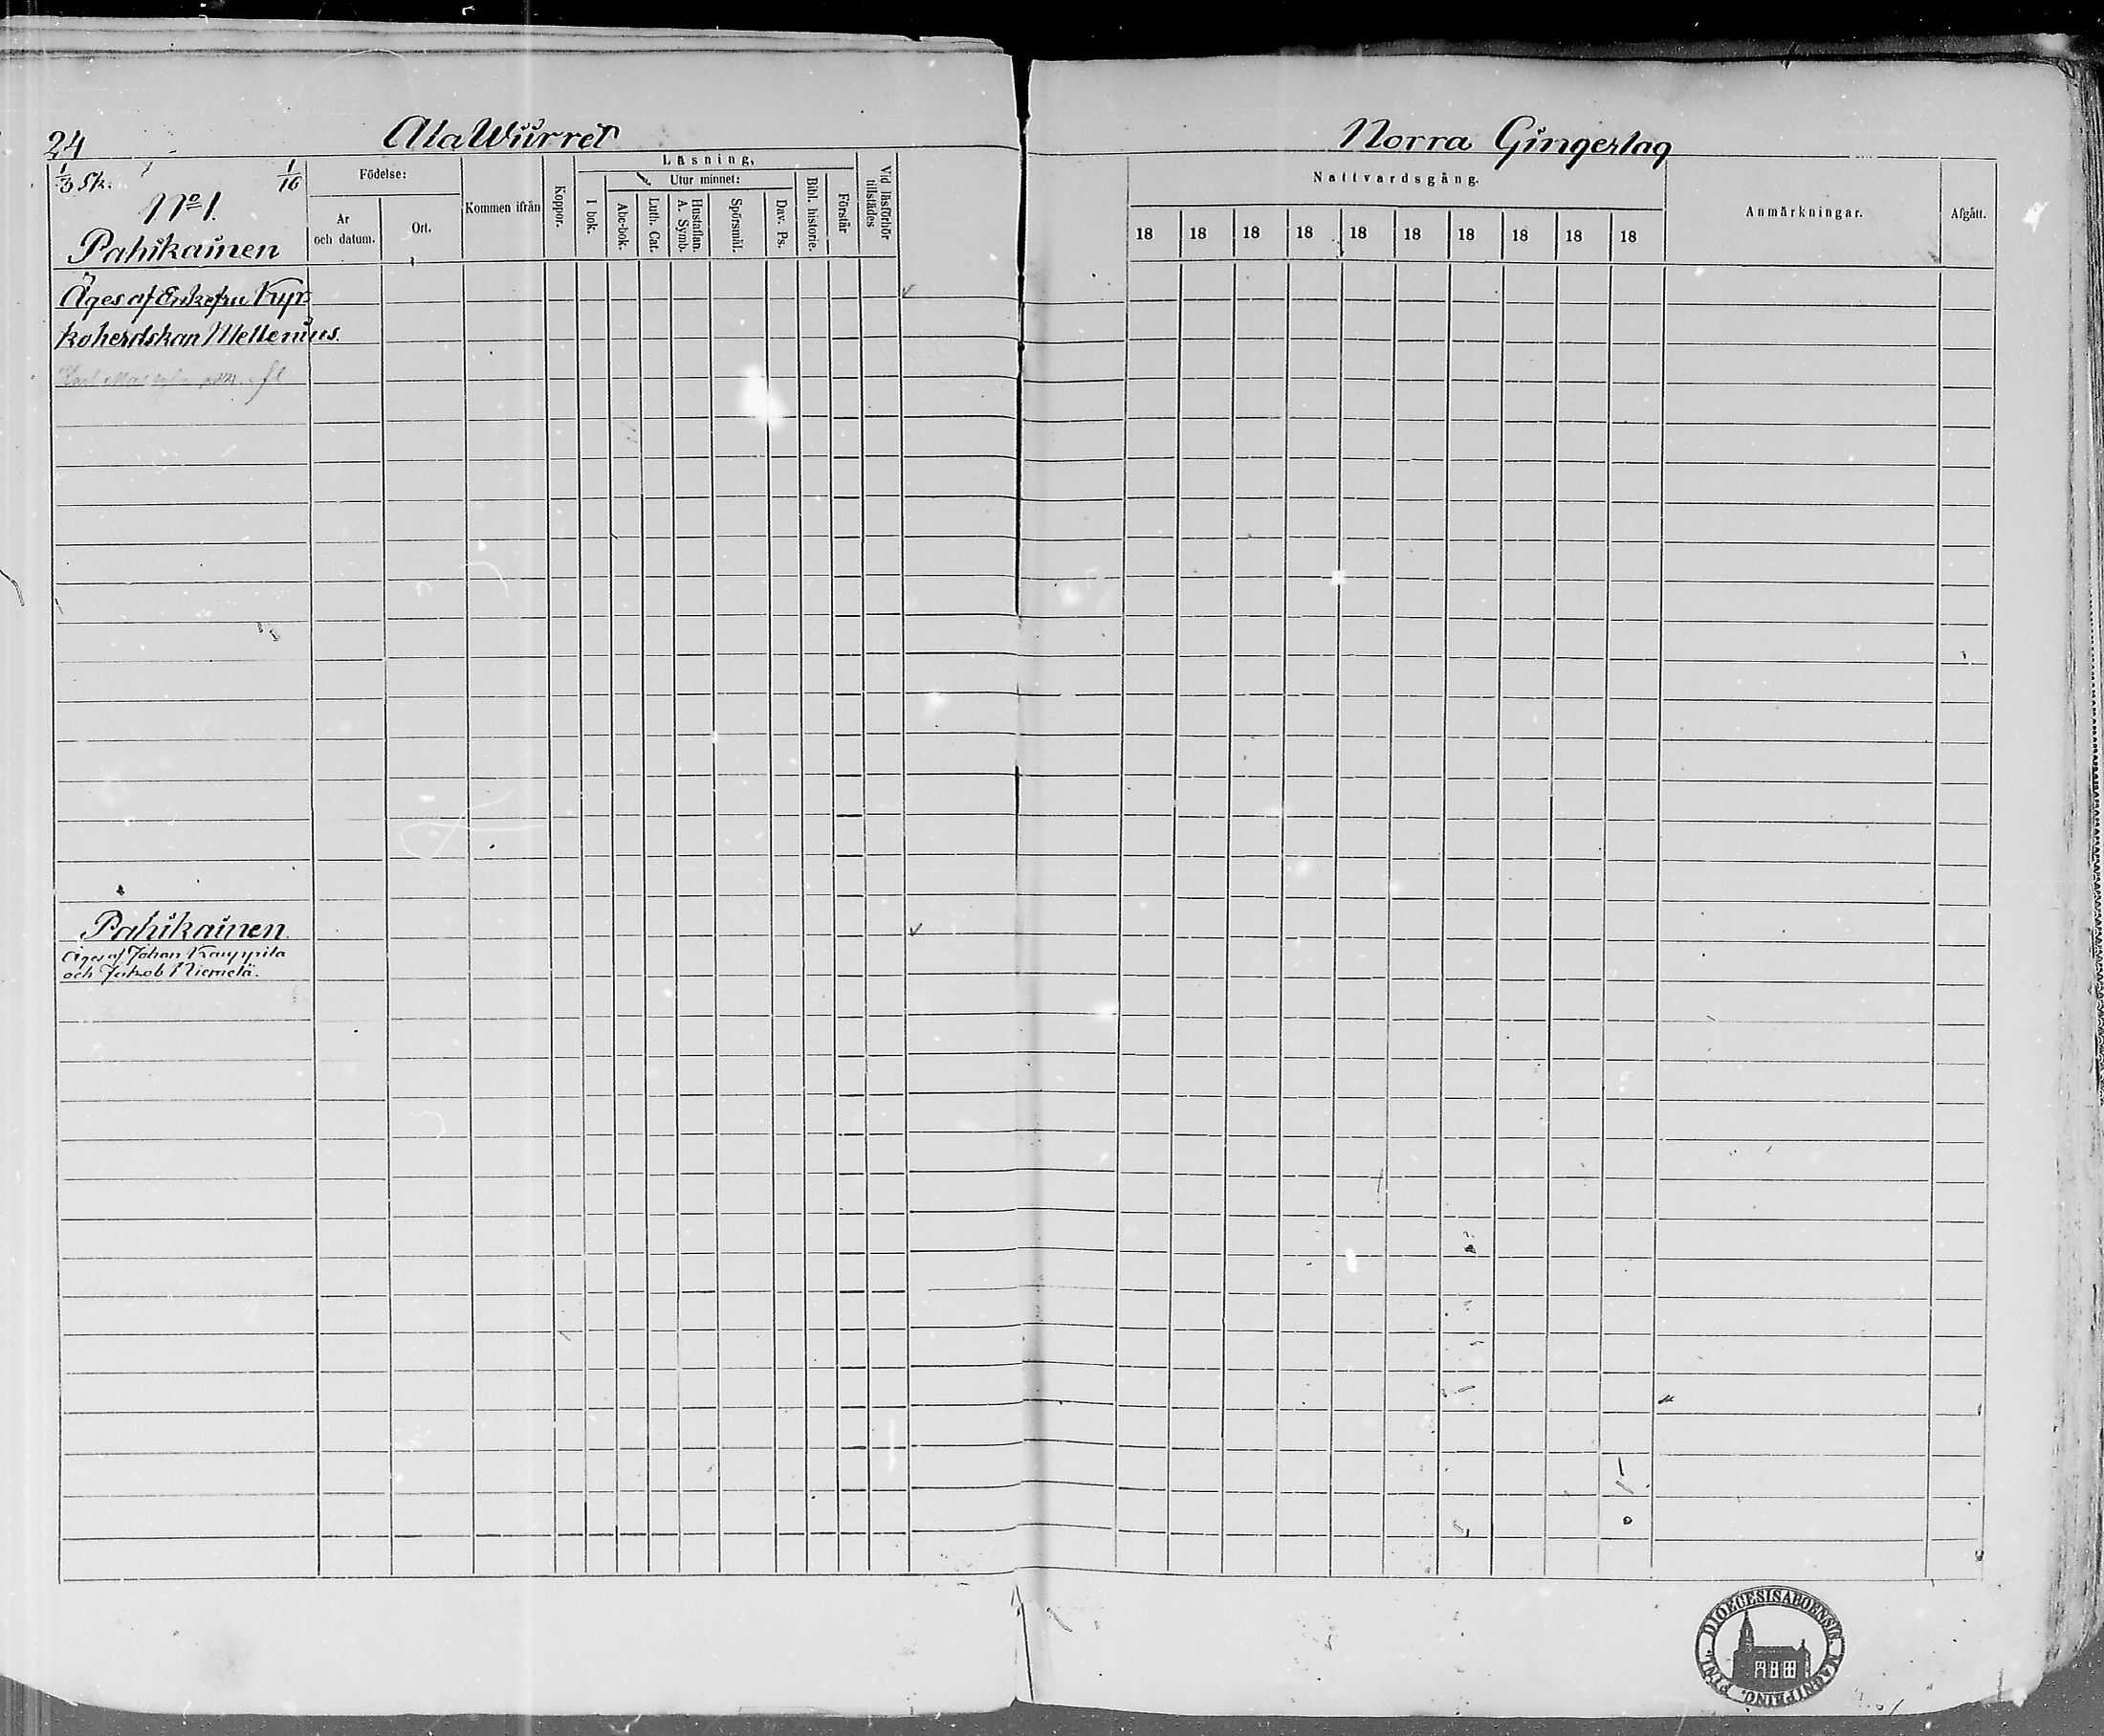 24
Ala Wirret
Norra Gingerlag
1/3 Sk.
1/16
No 1.
Pahikainen
Födelse:
År och datum.
Ort.
Kommen ifrån
Koppor.
Läsning,
I bok.
Utur minnet:
Abc-bok.
Luth. Cat.
Hustaflan. A. Symb.
Spörsmål.
Dav. Ps.
Bibl. historie.
Förstår
Vid läsförhör tillstädes
Nattvardsgång.
18 18 18 18 18 18 18 18 18 18
Anmärkningar.
Afgått.
Äges af Enkefru Kyr
koherdskan Mellenius.
Pahikainen
Äges af Johan Kauppila
och Jakob Niemelä.
DIOECESIS ABOENSIS